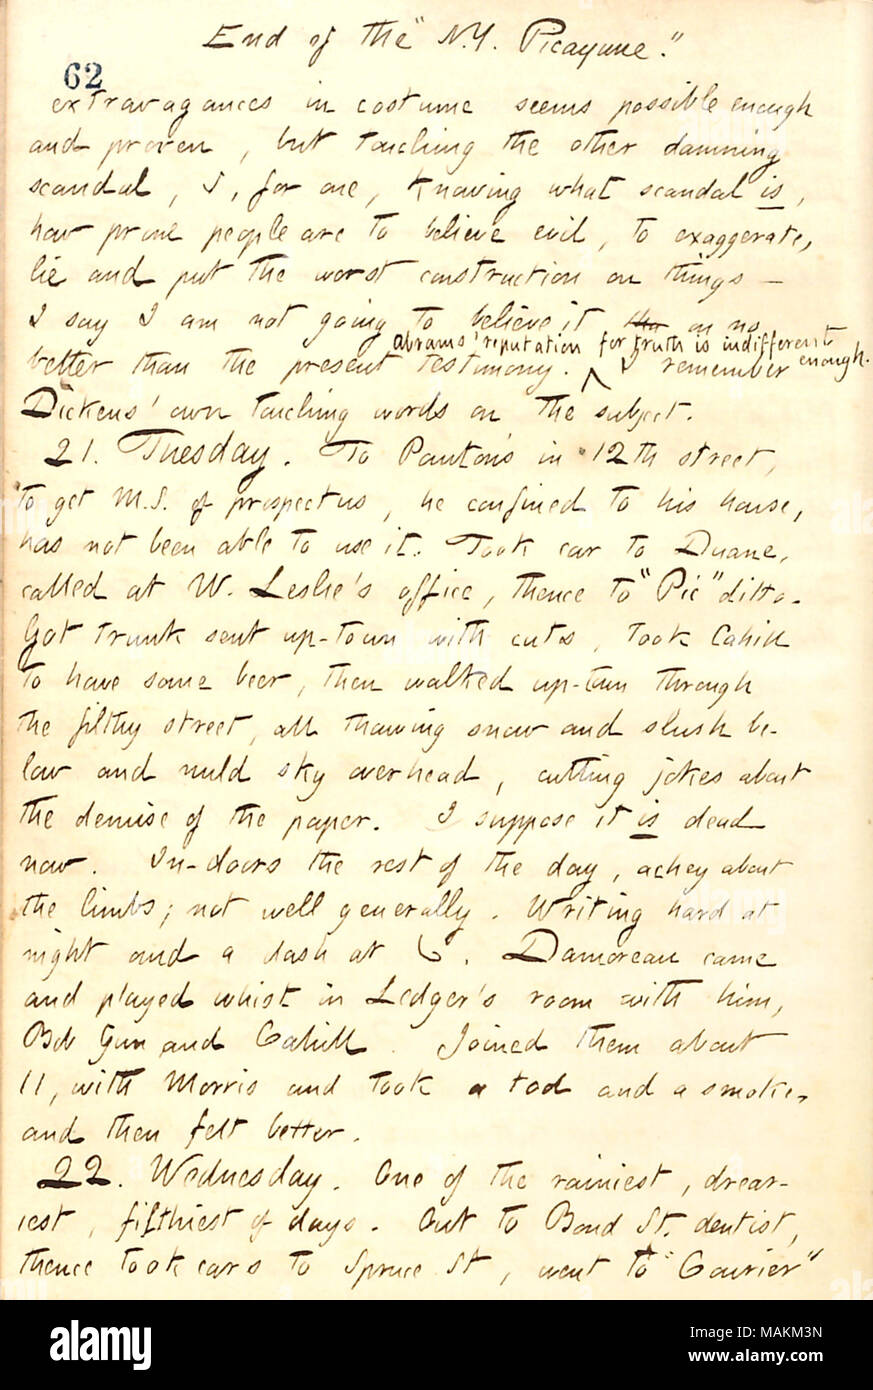 End of the "N.Y. Picayune."
62
extravagances in costume seems possible enough
and proven, but touching the other damning
scandal, I, for one, knowing what scandal is,
how prone people are to believe evil, to exaggerate,
lie and put the worst construction on things —
I say I am not going to believe it tha on no
abrams' reputation for truth is indifferent
better than the present testimony. ^ I remember enough.
Dickens' own touching words on the subject.
21. Tuesday. To Pounton's in 12th street,
to get M.S. of prospectus, he confined to his house,
has not been able to use it. Took car to Duane,
called at W. Leslie's office, thence to "Pic" ditto.
Got trunk sent up-town with cuts, took Cahill
to have some beer, then walked up-town through
the filthy street, all thawing snow and slush be-
low and mild sky overhead, cutting jokes about
the demise of the paper. I suppose it is dead
now. In-doors the rest of the day, achey about
the limbs; not well generally. Writing hard at
night and a dash at . Damoreau came
and played whist in Ledger's room with him,
Bob Gun and Cahill. Joined them about
11, with Morris and took a tod and a smoke,
and then felt better.
22. Wednesday. One of the rainiest, drear-
iest, filthiest of days. Out to Bond St. dentist,
thence took cars to Spruce St, went to "Courier"
alamy
Image ID: MAKM3N
www.alamy.com